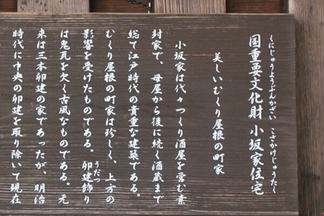 くにじゅうようぶんかざい こさかけじゅうたく
国重要文化財 小坂家住宅
美しいむくり屋根の町家
小坂家は代々つくり酒屋を営む素
封家で、母屋から後に続く酒蔵まで
総て江戸時代の貴重な建築である。
むくり屋根の町家は珍しく、上方の
影響を受けたものである。卯建飾り
うだつ
は鬼瓦を欠く古風なものである。元
来は三本卯建の家であったが、明治
時代に中央の卯建を取り除いて現在